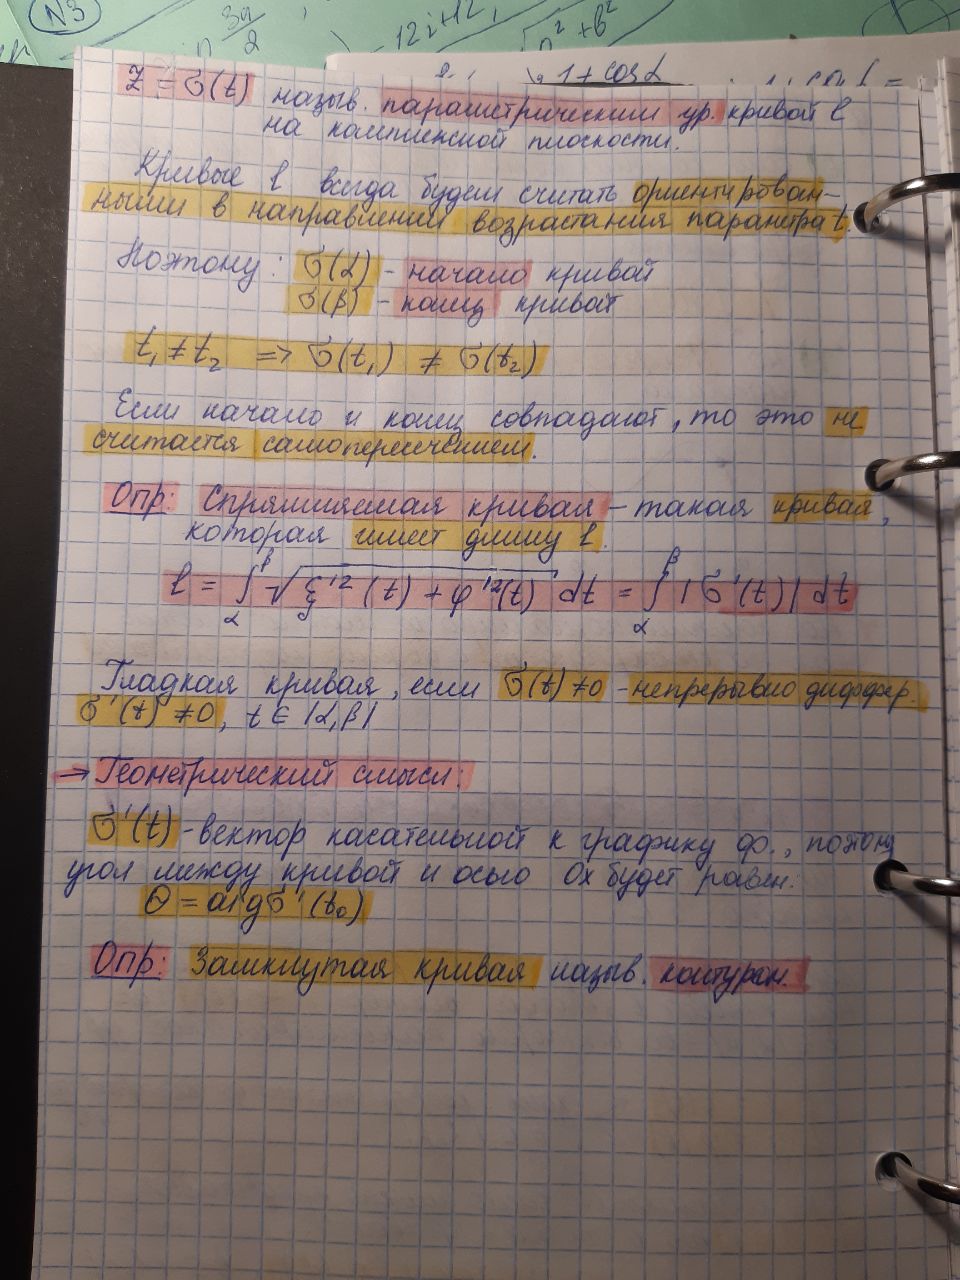 N3
3π/2
-12i+12,
n² + b²
1 + cos α
Z = σ(t) назыв. параметрическим ур. кривой l
на комплексной плоскости.
Кривые l всегда будем считать ориентирован-
ными в направлении возрастания параметра t.
Поэтому: σ(α) - начало кривой
σ(β) - конец кривой
t₁ ≠ t₂ => σ(t₁) ≠ σ(t₂)
Если начало и конец совпадают, то это не
считается самопересечением.
Опр: Спрямляемая кривая - такая кривая,
которая имеет длину l.
l = ∫_α^β √(ξ'²(t) + φ'²(t)) dt = ∫_α^β |σ'(t)| dt
Гладкая кривая, если σ(t) ≠ 0 - непрерывно диффер.
σ'(t) ≠ 0, t ∈ |α, β|
→ Геометрический смысл:
σ'(t) - вектор касательной к графику ф., поэтому
угол между кривой и осью Ox будет равен:
Θ = arg σ'(t₀)
Опр: Замкнутая кривая назыв. контуром.